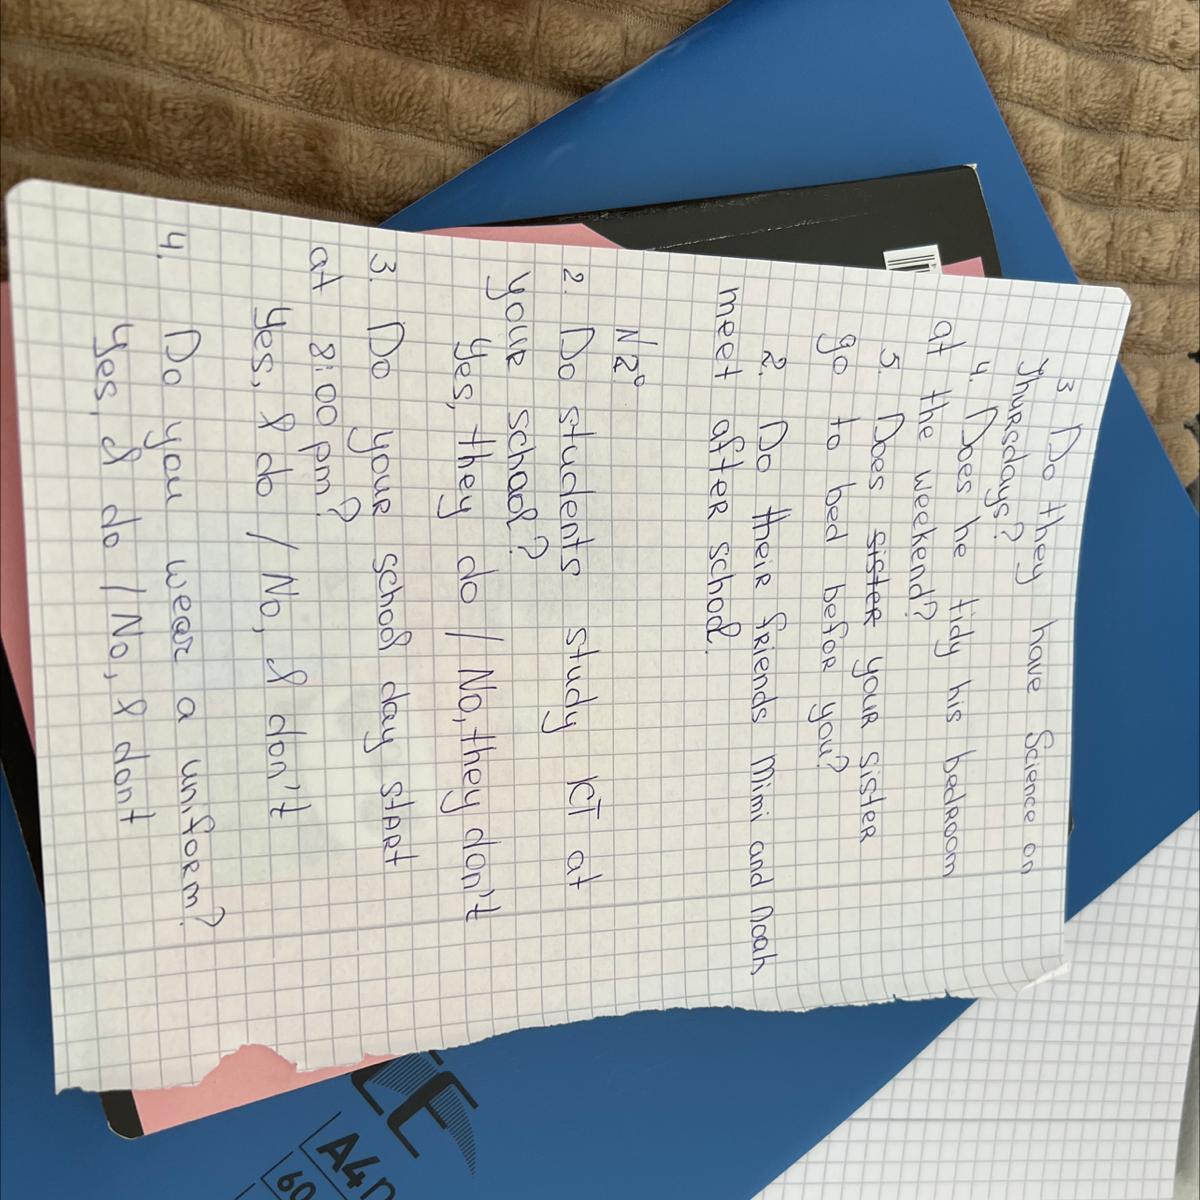 3 Do they have Science on
Thursdays?
4. Does he tidy his bedroom
at the weekend?
5. Does sister your sister
go to bed befor you?
2. Do their friends Mimi and Noah
meet after school.
N2°
2. Do students study ICT at
your school?
Yes, they do / No, they don't
3. Do your school day start
at 8:00 pm?
Yes, I do / No, I don't
4.
Do you wear a uniform?
Yes, I do / No, I dont
A4
60